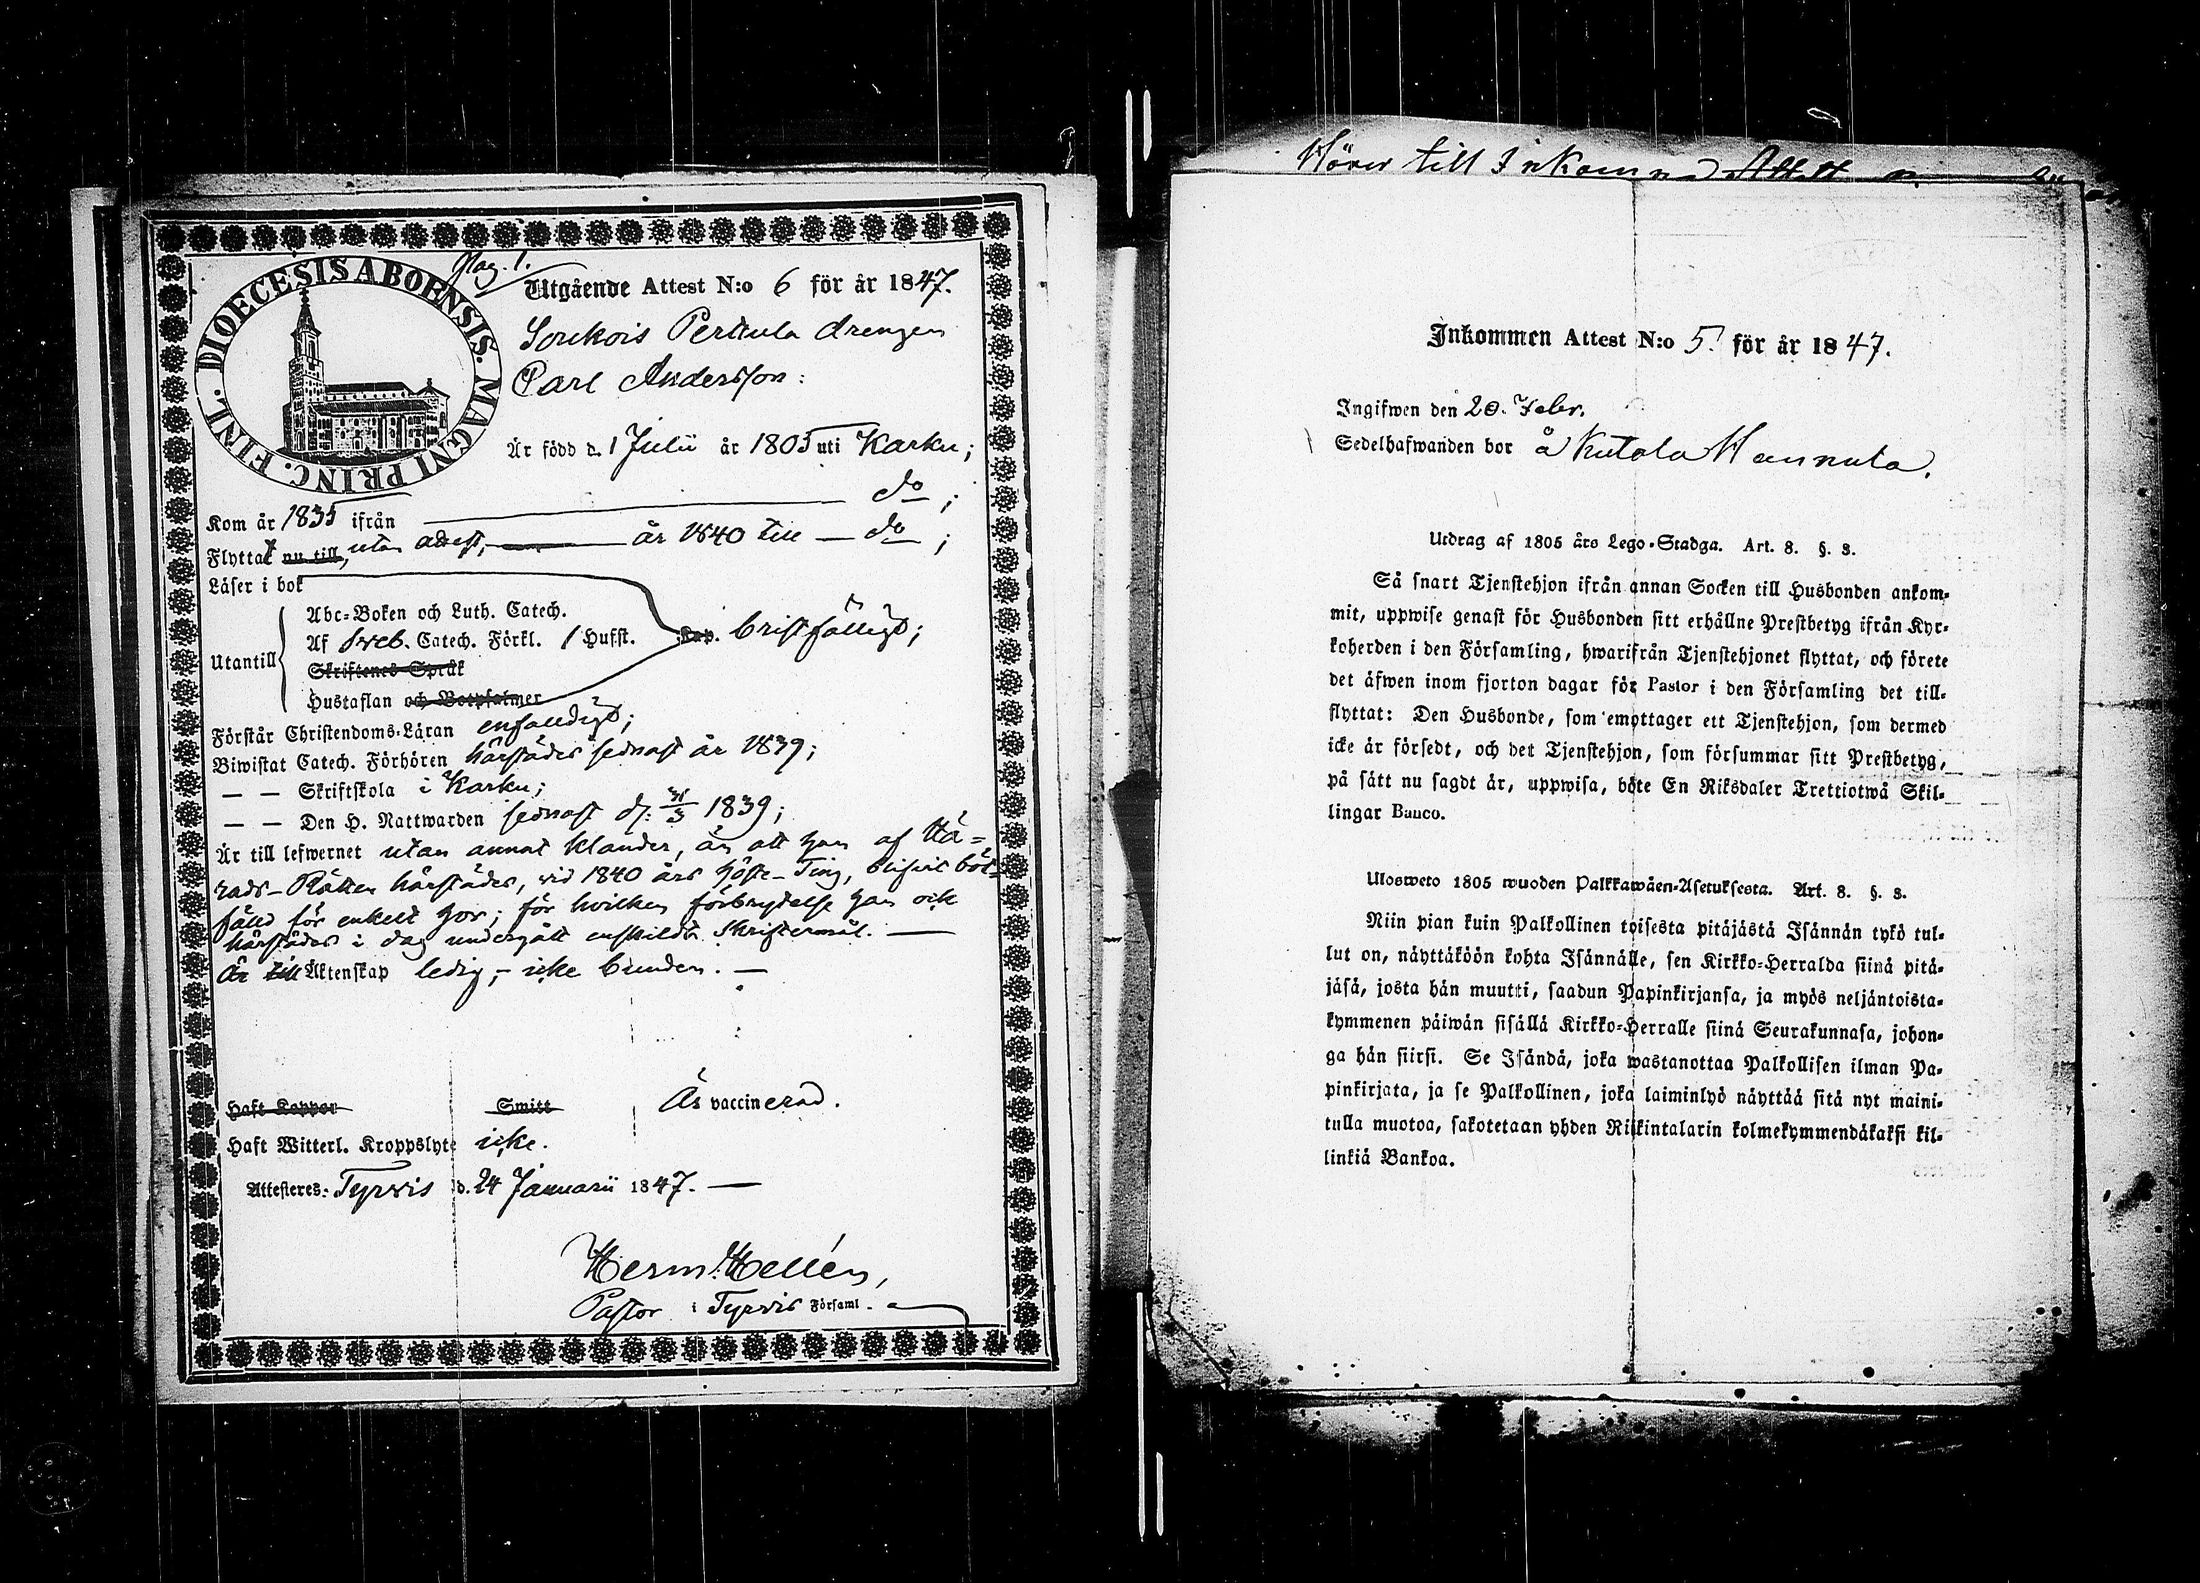 DIOECESIS ABOENSIS. MAGNI PRINC. FINL.
Utgående Attest N:o 6 för år 1847.
Soukois Perttula drengen
Carl Andersson:
Är född d. 1 Julii år 1805 uti Karku;
Kom år 1835 ifrån do;
Flyttat nu till, utan attest, år 1840 till do;
Läser i bok
Utantill
Abc-Boken och Luth. Catech.
Af Sveb. Catech. Förkl. 1 Hufst. Kap. bristfälligt;
Skriftenes Språk
Hustaflan och Botpsalmer
Förstår Christendoms-Läran enfaldigt;
Biwistat Catech. Förhören härstädes sednast år 1839;
— — Skriftskola i Karku;
— — Den H. Nattwarden sednast d. 31/3 1839;
Är till lefwernet utan annat klander, än att han af Hä-
rads-Rätten härstädes, vid 1840 års Höste-Ting, blifvit böt-
fälld för enkelt hor; för hvilken förbrydelse han ock
härstädes i dag undergått enskildt Skriftermål. —
Är till Äktenskap ledig, icke bunden. —
Haft Koppor Smitt Är vaccinerad.
Haft Witterl. Kroppslyte icke.
Attesteres: Tyrvis d. 24 Januarii 1847. —
Herm. Hellén,
Pastor i Tyrvis Församl.
Hörer till Inkomna Attest
Inkommen Attest N:o 5. för år 1847.
Ingifwen den 20. Febr.
Sedelhafwanden bor å Kutala Hannula.
Utdrag af 1805 års Lego-Stadga. Art. 8. §. 3.
Så snart Tjenstehjon ifrån annan Socken till Husbonden ankom-
mit, uppwise genast för Husbonden sitt erhållne Prestbetyg ifrån Kyr-
koherden i den Församling, hwarifrån Tjenstehjonet flyttat, och förete
det äfwen inom fjorton dagar för Pastor i den Församling det till-
flyttat: Den Husbonde, som emottager ett Tjenstehjon, som dermed
icke är försedt, och det Tjenstehjon, som försummar sitt Prestbetyg,
på sätt nu sagdt är, uppwisa, böte En Riksdaler Trettiotwå Skil-
lingar Banco.
Ulosweto 1805 wuoden Palkkawäen-Asetuksesta. Art. 8. §. 3.
Niin pian kuin Palkollinen toisesta pitäjästä Isännän tykö tul-
lut on, näyttäköön kohta Isännälle, sen Kirkko-Herralda siinä pitä-
jäsä, josta hän muutti, saadun Papinkirjansa, ja myös neljäntoista-
kymmenen päiwän sisällä Kirkko-Herralle siinä Seurakunnasa, johon-
ga hän siirsi. Se Isändä, joka wastanottaa Palkollisen ilman Pa-
pinkirjata, ja se Palkollinen, joka laiminlyö näyttää sitä nyt maini-
tulla muotoa, sakotetaan yhden Riikintalarin kolmekymmendäkaksi kil-
linkiä Bankoa.